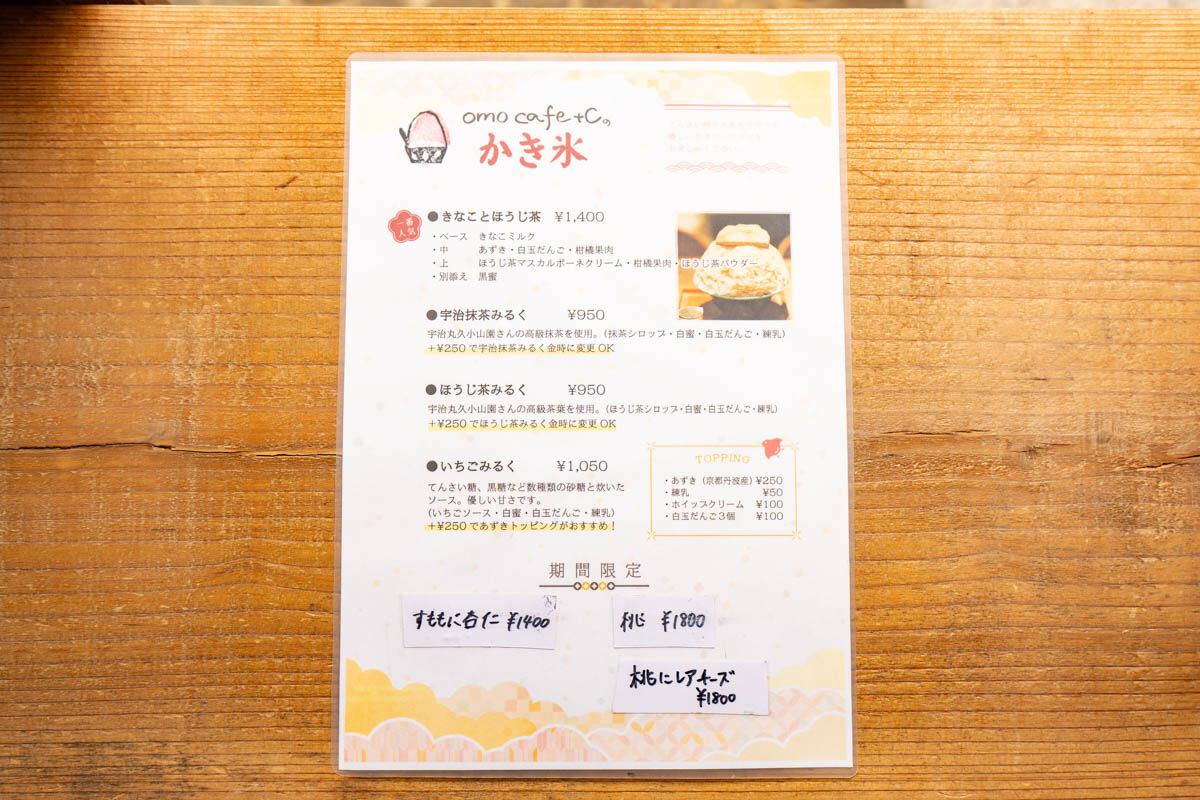 omo cafe +Cの
かき氷
一番
人気
●きなことほうじ茶 ¥1,400
・ベース きなこミルク
・中 あずき・白玉だんご・柑橘果肉
・上 ほうじ茶マスカルポーネクリーム・柑橘果肉・ほうじ茶パウダー
・別添え 黒蜜
●宇治抹茶みるく ¥950
宇治丸久小山園さんの高級抹茶を使用。(抹茶シロップ・白蜜・白玉だんご・練乳)
+¥250で宇治抹茶みるく金時に変更OK
●ほうじ茶みるく ¥950
宇治丸久小山園さんの高級茶葉を使用。(ほうじ茶シロップ・白蜜・白玉だんご・練乳)
+¥250でほうじ茶みるく金時に変更OK
●いちごみるく ¥1,050
てんさい糖、黒糖など数種類の砂糖と炊いた
ソース。優しい甘さです。
(いちごソース・白蜜・白玉だんご・練乳)
+¥250であずきトッピングがおすすめ!
TOPPING
・あずき(京都丹波産)¥250
・練乳 ¥50
・ホイップクリーム ¥100
・白玉だんご3個 ¥100
期間限定
すももに杏仁 ¥1400
桃 ¥1800
桃にレアチーズ
¥1800